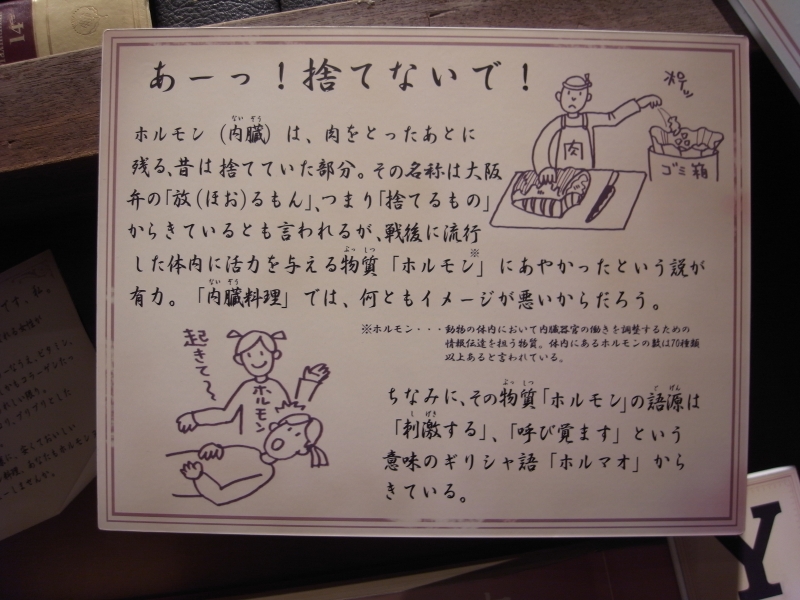 あーっ！捨てないで！
ポイッ
肉
ゴミ箱
ホルモン（内臓）は、肉をとったあとに
残る、昔は捨てていた部分。その名称は大阪
弁の「放（ほお）るもん」、つまり「捨てるもの」
からきているとも言われるが、戦後に流行
した体内に活力を与える物質「ホルモン」※にあやかったという説が
有力。「内臓料理」では、何ともイメージが悪いからだろう。
※ホルモン・・・動物の体内において内臓器官の働きを調整するための
情報伝達を担う物質。体内にあるホルモンの数は70種類
以上あると言われている。
起きて〜
ホルモン
ちなみに、その物質「ホルモン」の語源は
「刺激する」、「呼び覚ます」という
意味のギリシャ語「ホルマオ」から
きている。
14
Y